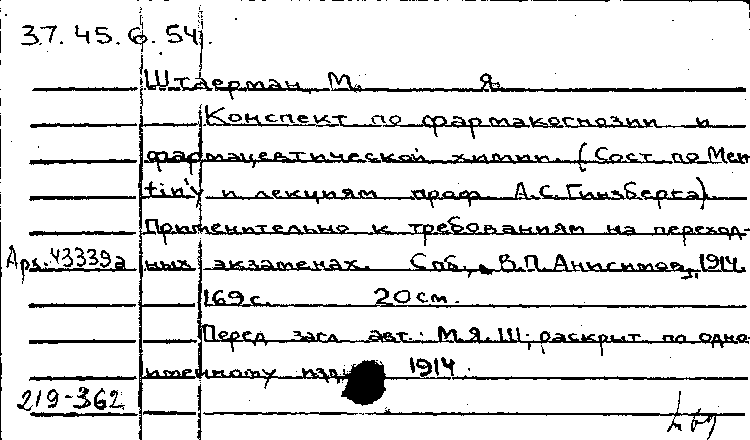 37. 45. 6. 54.
Штаерман, М. Я.
Конспект по фармакогнозии и
фармацевтической химии. (Сост. по Men-
tin'у и лекциям проф. А.С. Гинзберга)
Применительно к требованиям на переход-
Арх. 43339а ных экзаменах. Спб., В.П. Анисимов, 1914.
169 с. 20 см.
Перед загл. авт.: М.Я.Ш; раскрыт по одно-
именному изд. 1914.
219-362